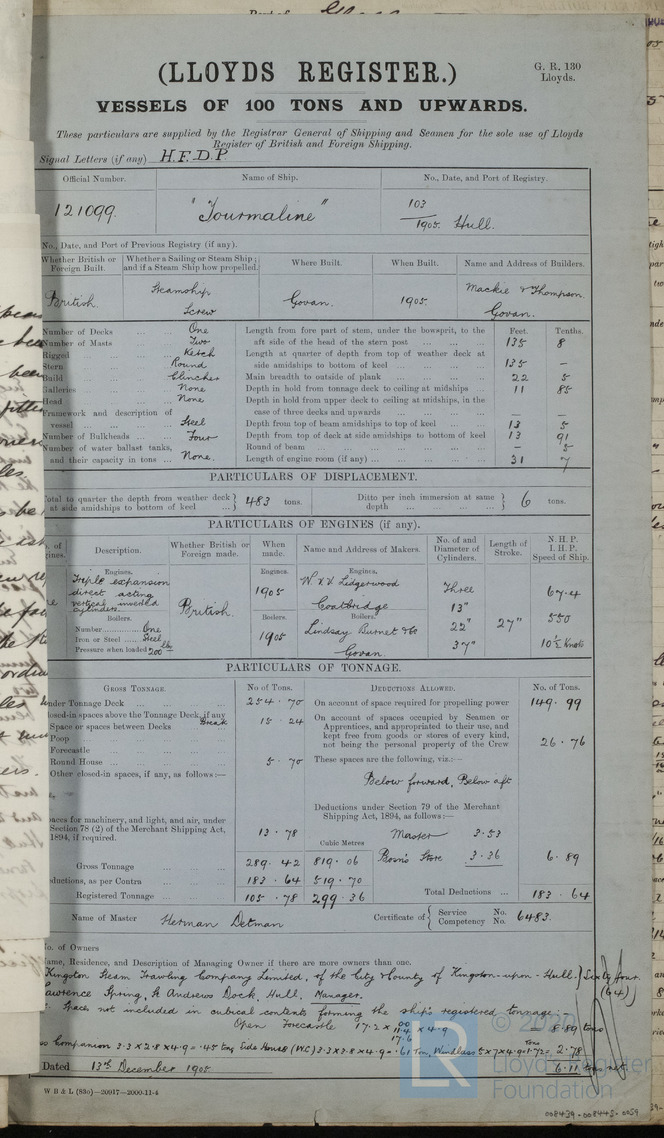 (LLOYDS REGISTER.)
G. R. 130
Lloyds.
VESSELS OF 100 TONS AND UPWARDS.
These particulars are supplied by the Registrar General of Shipping and Seamen for the sole use of Lloyds
Register of British and Foreign Shipping.
Signal Letters (if any) H.F.D.P
Official Number. Name of Ship. No., Date, and Port of Registry.
121099. "Tourmaline" 103/1905 Hull.
No., Date, and Port of Previous Registry (if any).
Whether British or Foreign Built. Whether a Sailing or Steam Ship; and if a Steam Ship how propelled. Where Built. When Built. Name and Address of Builders.
British Steamship Screw Govan. 1905. Mackie & Thompson. Govan.
Number of Decks ... ... One
Number of Masts ... ... Two
Rigged ... Ketch
Stern ... Round
Build ... Clincher
Galleries ... None
Head ... None
Framework and description of vessel ... Steel
Number of Bulkheads ... Four
Number of water ballast tanks, and their capacity in tons ... None.
Feet. Tenths.
Length from fore part of stem, under the bowsprit, to the aft side of the head of the stern post ... 135 8
Length at quarter of depth from top of weather deck at side amidships to bottom of keel ... 135 –
Main breadth to outside of plank ... 22 5
Depth in hold from tonnage deck to ceiling at midships ... 11 85
Depth in hold from upper deck to ceiling at midships, in the case of three decks and upwards ... — —
Depth from top of beam amidships to top of keel ... 13 5
Depth from top of deck at side amidships to bottom of keel 13 91
Round of beam ... – 5
Length of engine room (if any) ... 31 7
PARTICULARS OF DISPLACEMENT.
Total to quarter the depth from weather deck at side amidships to bottom of keel ... } 483 tons. Ditto per inch immersion at same depth ... } 6 tons.
PARTICULARS OF ENGINES (if any).
Description. Whether British or Foreign made. When made. Name and Address of Makers. No. of and Diameter of Cylinders. Length of Stroke. N. H. P. I. H. P. Speed of Ship.
Engines. Engines. Engines.
Triple expansion
direct acting
vertical inverted
cylinders
British. 1905 W. V. V. Lidgerwood
Coatbridge
Three 13" 22" 37" 27" 67.4 550 10½ Knots
Boilers. Boilers. Boilers.
Number One
Iron or Steel Steel
Pressure when loaded 200 lbs
1905 Lindsay Burnet & Co
Govan.
PARTICULARS OF TONNAGE.
GROSS TONNAGE. No. of Tons. DEDUCTIONS ALLOWED. No. of Tons.
Under Tonnage Deck ... 254.70
Closed-in spaces above the Tonnage Deck, if any
Space or spaces between Decks Break 15.24
Poop
Forecastle
Round House ... 5.70
Other closed-in spaces, if any, as follows:—
Spaces for machinery, and light, and air, under Section 78 (2) of the Merchant Shipping Act, 1894, if required. 13.78
Cubic Metres
Gross Tonnage ... 289.42 819.06
Deductions, as per Contra ... 183.64 519.70
Registered Tonnage ... 105.78 299.36
On account of space required for propelling power 149.99
On account of spaces occupied by Seamen or
Apprentices, and appropriated to their use, and
kept free from goods or stores of every kind,
not being the personal property of the Crew 26.76
These spaces are the following, viz.:—
Below forward, Below aft
Deductions under Section 79 of the Merchant
Shipping Act, 1894, as follows:—
Master 3.53
Bosn's Store 3.36 6.89
Total Deductions ... 183.64
Name of Master Herman Detman Certificate of { Service No. Competency No. 6483.
No. of Owners
Name, Residence, and Description of Managing Owner if there are more owners than one.
Kingston Steam Trawling Company Limited, of the City & County of Kingston-upon-Hull. } Sixty four
(64)
Lawrence Spring, St Andrews Dock, Hull, Manager.
Spaces not included in cubical contents forming the ship's registered tonnage:—
Open Forecastle 17.2 x x 4.9 8.89 tons
Companion 3.3 x 2.8 x 4.9 = .45 ton, Side House (WC) 3.3 x 3.8 x 4.9 = .61 Ton, Windlass 5 x 7 x 4.9 = 1.72 = 2.78
6.11 tons net
Dated 13th December 1905
W B & L (83o)—20917—2000-11-4
© 2020
LR
Lloyd's Register
Foundation
008439-008443-0059